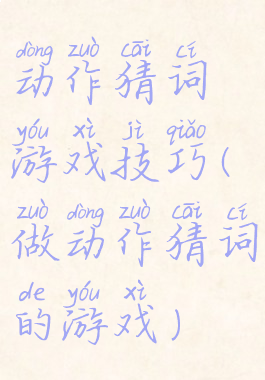 dòng zuò cāi cí
动作猜词
yóu xì jì qiǎo
游戏技巧(
zuò dòng zuò cāi cí
做动作猜词
de yóu xì
的游戏)